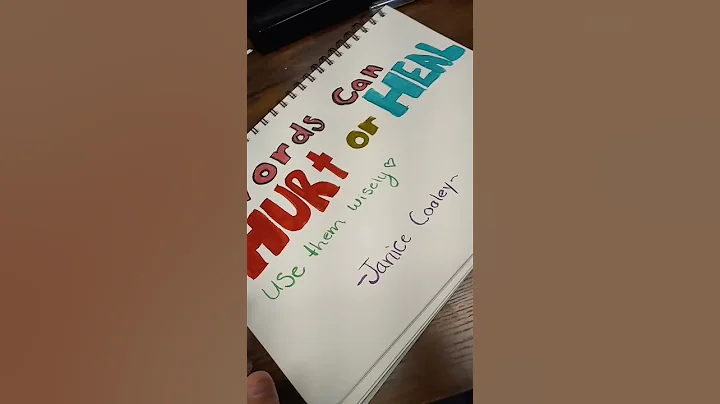 Words Can
HURt or HEAL
use them wisely♡
-Janice Cooley~